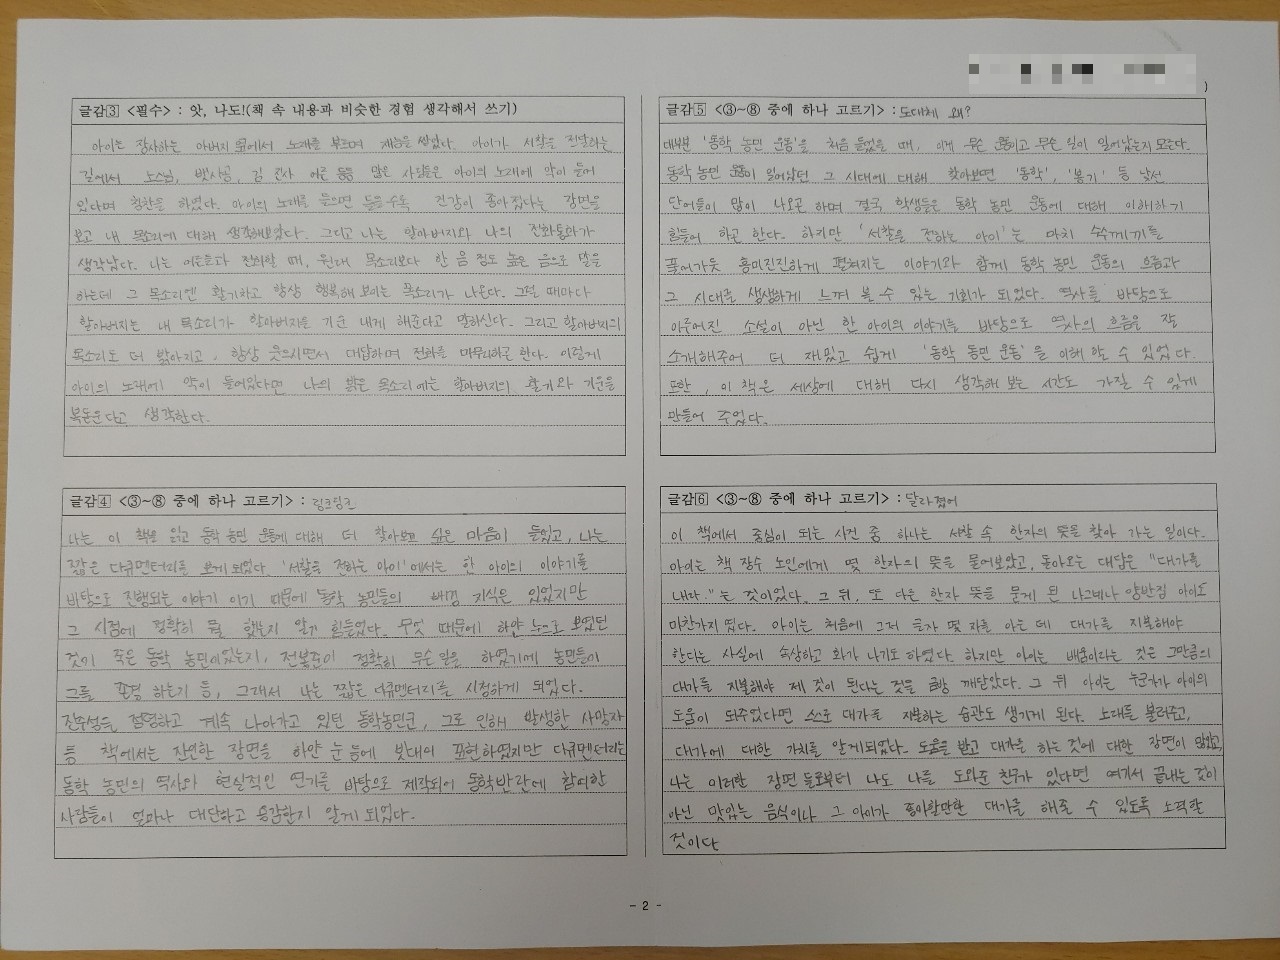 글감③ <필수> : 앗, 나도!(책 속 내용과 비슷한 경험 생각해서 쓰기)
아이는 장사하는 아버지 옆에서 노래를 부르며 재능을 쌓았다. 아이가 서찰을 전달하는
길에서 노스님, 뱃사공, 김 진사 어른 등등 많은 사람들은 아이의 노래에 약이 들어
있다며 칭찬을 하였다. 아이의 노래를 들으면 들을수록 건강이 좋아졌다는 장면을
보고 내 목소리에 대해 생각해보았다. 그리고 나는 할아버지와 나의 전화통화가
생각났다. 나는 어른들과 전화할 때, 원래 목소리보다 한 음 정도 높은 음으로 말을
하는데 그 목소리엔 활기차고 항상 행복해 보이는 목소리가 나온다. 그럴 때마다
할아버지는 내 목소리가 할아버지를 기운 내게 해준다고 말하신다. 그리고 할아버지의
목소리도 더 밝아지고, 항상 웃으시면서 대답하며 전화를 마무리하곤 한다. 이렇게
아이의 노래에 약이 들어있다면 나의 밝은 목소리에는 할아버지의 활기와 기운을
북돋운다고 생각한다.
글감④ <③~⑧ 중에 하나 고르기> : 링크링크
나는 이 책을 읽고 동학 농민 운동에 대해 더 찾아보고 싶은 마음이 들었고, 나는
짧은 다큐멘터리를 보게 되었다. '서찰을 전하는 아이'에서는 한 아이의 이야기를
바탕으로 진행되는 이야기 이기 때문에 동학 농민들의 배경 지식은 있었지만
그 시점에 정확히 뭘 했는지 알기 힘들었다. 무엇 때문에 하얀 눈으로 보였던
것이 죽은 동학 농민이었는지, 전봉준이 정확히 무슨 일을 하였기에 농민들이
그를 존경 하는지 등, 그래서 나는 짧은 다큐멘터리를 시청하게 되었다.
전주성을 점령하고 계속 나아가고 있던 동학농민군, 그로 인해 발생한 사망자
등 책에서는 잔인한 장면을 하얀 눈 등에 빗대어 표현하였지만 다큐멘터리는
동학 농민의 역사와 현실적인 연기를 바탕으로 제작되어 동학반란에 참여한
사람들이 얼마나 대단하고 용감한지 알게 되었다.
글감⑤ <③~⑧ 중에 하나 고르기> : 도대체 왜?
대부분 '동학 농민 운동'을 처음 들었을 때, 이게 무슨 운동이고 무슨 일이 일어났는지 모른다.
동학 농민 운동이 일어났던 그 시대에 대해 찾아보면 '동학', '봉기' 등 낯선
단어들이 많이 나오곤 하며 결국 학생들은 동학 농민 운동에 대해 이해하기
힘들어 하곤 한다. 하지만 '서찰을 전하는 아이'는 마치 수수께끼를
풀어가듯 흥미진진하게 펼쳐지는 이야기와 함께 동학 농민 운동의 흐름과
그 시대를 생생하게 느껴 볼 수 있는 기회가 되었다. 역사를 바탕으로
이루어진 소설이 아닌 한 아이의 이야기를 바탕으로 역사의 흐름을 잘
소개해주어 더 재밌고 쉽게 '동학 농민 운동'을 이해 할 수 있었다.
또한, 이 책은 세상에 대해 다시 생각해 보는 시간도 가질 수 있게
만들어 주었다.
글감⑥ <③~⑧ 중에 하나 고르기> : 달라졌어
이 책에서 중심이 되는 사건 중 하나는 서찰 속 한자의 뜻을 찾아 가는 일이다.
아이는 책 장수 노인에게 몇 한자의 뜻을 물어보았고, 돌아오는 대답은 "대가를
내다."는 것이었다. 그 뒤, 또 다른 한자 뜻을 묻게 된 나그네나 양반집 아이도
마찬가지 였다. 아이는 처음에 그저 글자 몇 자를 아는 데 대가를 지불해야
한다는 사실에 속상하고 화가 나기도 하였다. 하지만 아이는 배움이라는 것은 그만큼의
대가를 지불해야 제 것이 된다는 것을 금방 깨달았다. 그 뒤 아이는 누군가가 아이의
도움이 되주었다면 스스로 대가를 지불하는 습관도 생기게 된다. 노래를 불러주고,
대가에 대한 가치를 알게되었다. 도움을 받고 대가를 하는 것에 대한 장면이 많았고,
나는 이러한 장면 들로부터 나도 나를 도와준 친구가 있다면 여기서 끝내는 것이
아닌 맛있는 음식이나 그 아이가 좋아할만한 대가를 해줄 수 있도록 노력할
것이다
- 2 -